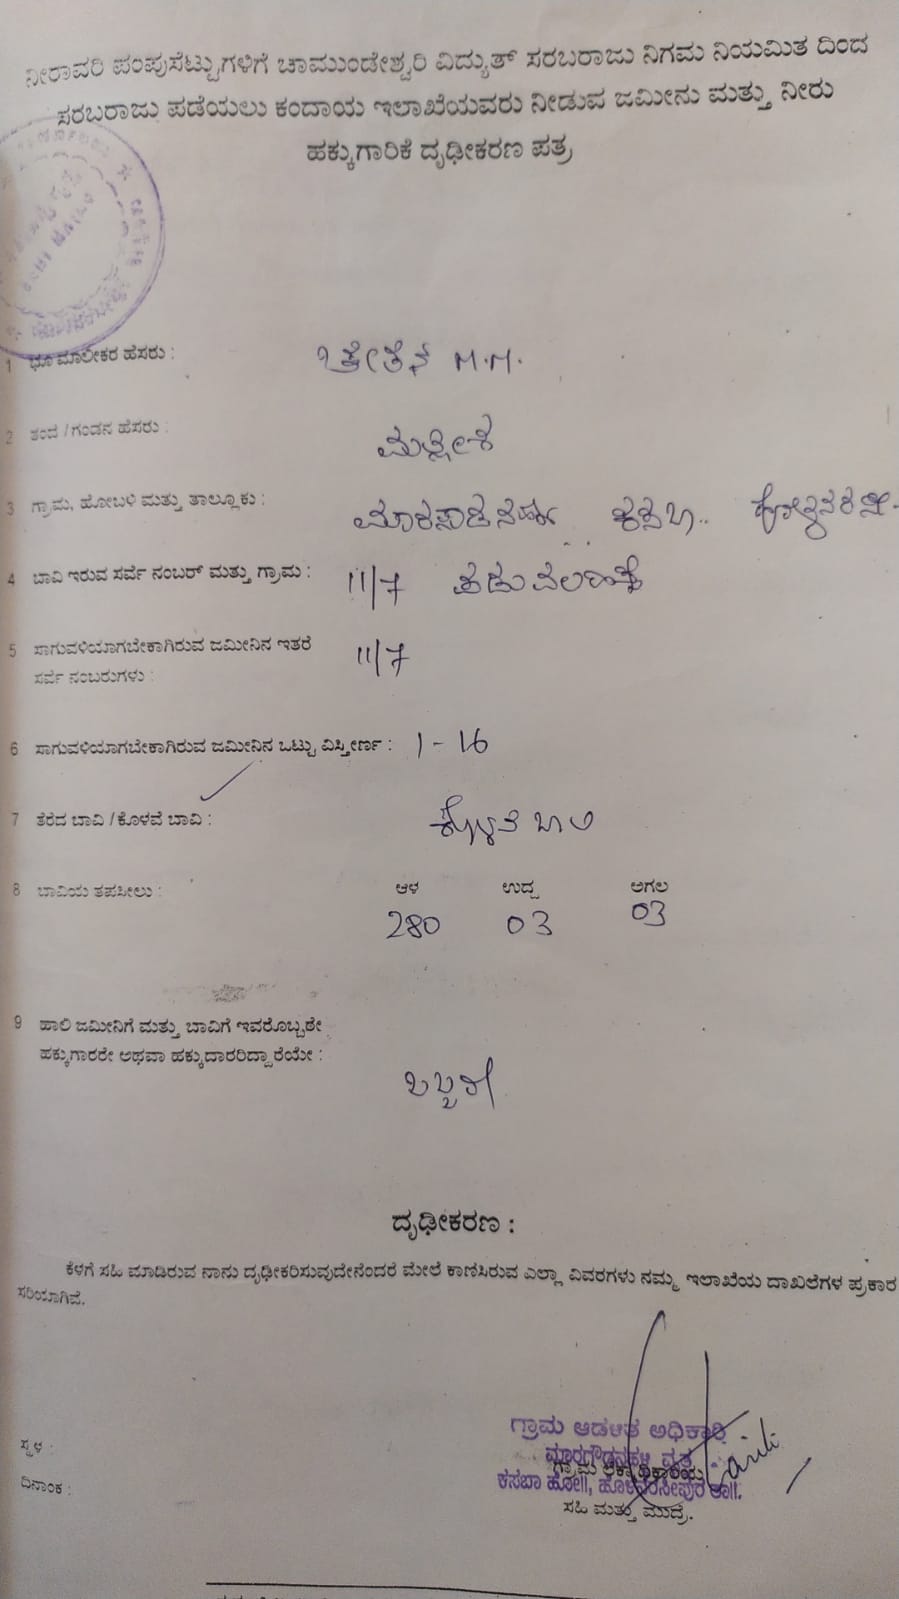 ನೀರಾವರಿ ಪಂಪುಸೆಟ್ಟುಗಳಿಗೆ ಚಾಮುಂಡೇಶ್ವರಿ ವಿದ್ಯುತ್ ಸರಬರಾಜು ನಿಗಮ ನಿಯಮಿತ ದಿಂದ
ಸರಬರಾಜು ಪಡೆಯಲು ಕಂದಾಯ ಇಲಾಖೆಯವರು ನೀಡುವ ಜಮೀನು ಮತ್ತು ನೀರು
ಹಕ್ಕುಗಾರಿಕೆ ದೃಢೀಕರಣ ಪತ್ರ
1 ಭೂ ಮಾಲೀಕರ ಹೆಸರು : ಚೇತನ M.M.
2 ತಂದೆ / ಗಂಡನ ಹೆಸರು : ಮಲ್ಲೇಶ
3 ಗ್ರಾಮ, ಹೋಬಳಿ ಮತ್ತು ತಾಲ್ಲೂಕು : ಕಸಬಾ
4 ಬಾವಿ ಇರುವ ಸರ್ವೆ ನಂಬರ್ ಮತ್ತು ಗ್ರಾಮ : 11/7
5 ಸಾಗುವಳಿಯಾಗಬೇಕಾಗಿರುವ ಜಮೀನಿನ ಇತರೆ 11/7
ಸರ್ವೆ ನಂಬರುಗಳು :
6 ಸಾಗುವಳಿಯಾಗಬೇಕಾಗಿರುವ ಜಮೀನಿನ ಒಟ್ಟು ವಿಸ್ತೀರ್ಣ : 1 - 16
7 ತೆರೆದ ಬಾವಿ / ಕೊಳವೆ ಬಾವಿ : ಕೊಳವೆ ಬಾವಿ
8 ಬಾವಿಯ ತಪಸೀಲು : ಆಳ ಉದ್ದ ಅಗಲ
280 03 03
9 ಹಾಲಿ ಜಮೀನಿಗೆ ಮತ್ತು ಬಾವಿಗೆ ಇವರೊಬ್ಬರೇ
ಹಕ್ಕುಗಾರರೇ ಅಥವಾ ಹಕ್ಕುದಾರರಿದ್ದಾರೆಯೇ :
ಒಬ್ಬರೇ
ದೃಢೀಕರಣ :
ಕೆಳಗೆ ಸಹಿ ಮಾಡಿರುವ ನಾನು ದೃಢೀಕರಿಸುವುದೇನೆಂದರೆ ಮೇಲೆ ಕಾಣಿಸಿರುವ ಎಲ್ಲಾ ವಿವರಗಳು ನಮ್ಮ ಇಲಾಖೆಯ ದಾಖಲೆಗಳ ಪ್ರಕಾರ
ಸರಿಯಾಗಿವೆ.
ಗ್ರಾಮ ಆಡಳಿತ ಅಧಿಕಾರಿ
ಸ್ಥಳ : ಮಾರಗೌಡನಹಳ್ಳಿ ವೃತ್ತ
ಗ್ರಾಮ ಲೆಕ್ಕಾಧಿಕಾರಿಯ
ದಿನಾಂಕ : ಕಸಬಾ ಹೋ||, ಹೊಳೆನರಸೀಪುರ ತಾ||.
ಸಹಿ ಮತ್ತು ಮುದ್ರೆ.